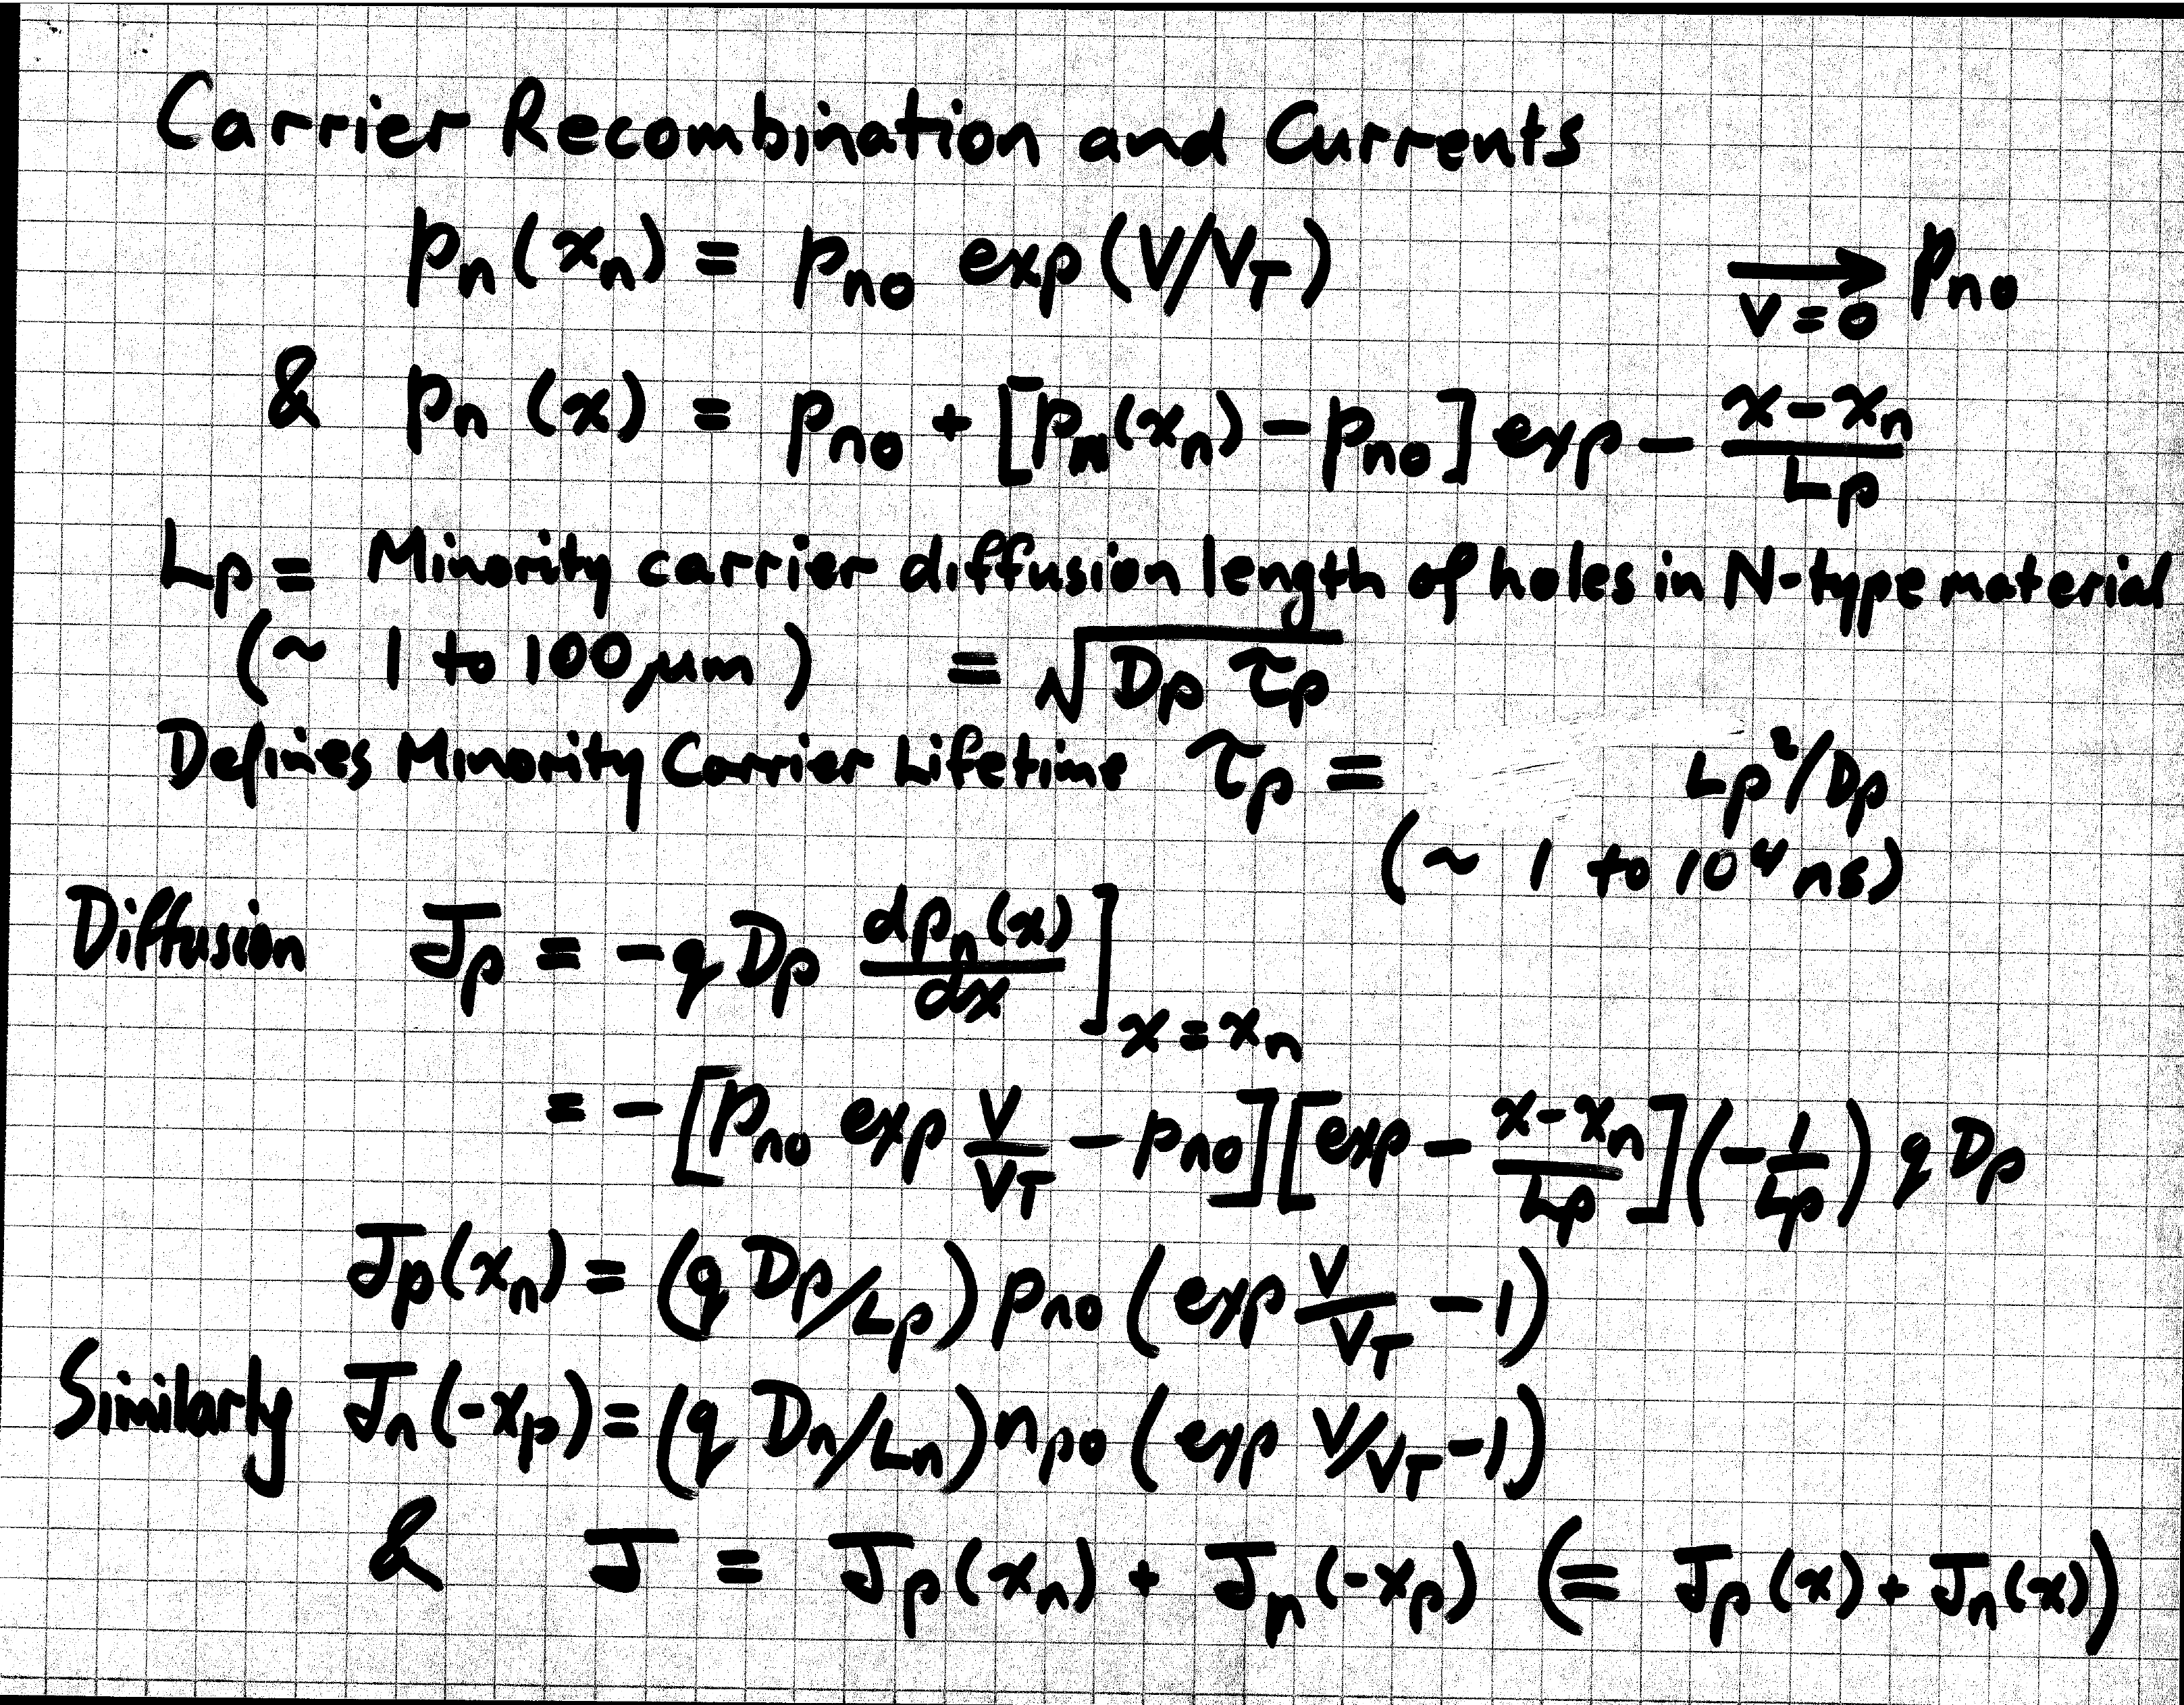 Carrier Recombination and Currents
pₙ(xₙ) = pₙ₀ exp(V/V_T) ⟶ pₙ₀
V=0
& pₙ(x) = pₙ₀ + [pₙ(xₙ) − pₙ₀] exp − (x − xₙ)/Lp
Lp = Minority carrier diffusion length of holes in N-type material
(~ 1 to 100 µm) = √(Dp τp)
Defines Minority Carrier Lifetime τp = Lp²/Dp
(~ 1 to 10⁴ ns)
Diffusion Jp = −q Dp dpₙ(x)/dx ]x=xₙ
= −[pₙ₀ exp V/V_T − pₙ₀][exp − (x − xₙ)/Lp](−1/Lp) q Dp
Jp(xₙ) = (q Dp/Lp) pₙ₀ (exp V/V_T − 1)
Similarly Jₙ(-xp) = (q Dₙ/Lₙ) np₀ (exp V/V_T − 1)
& J = Jp(xₙ) + Jₙ(-xp) (= Jp(x) + Jₙ(x))